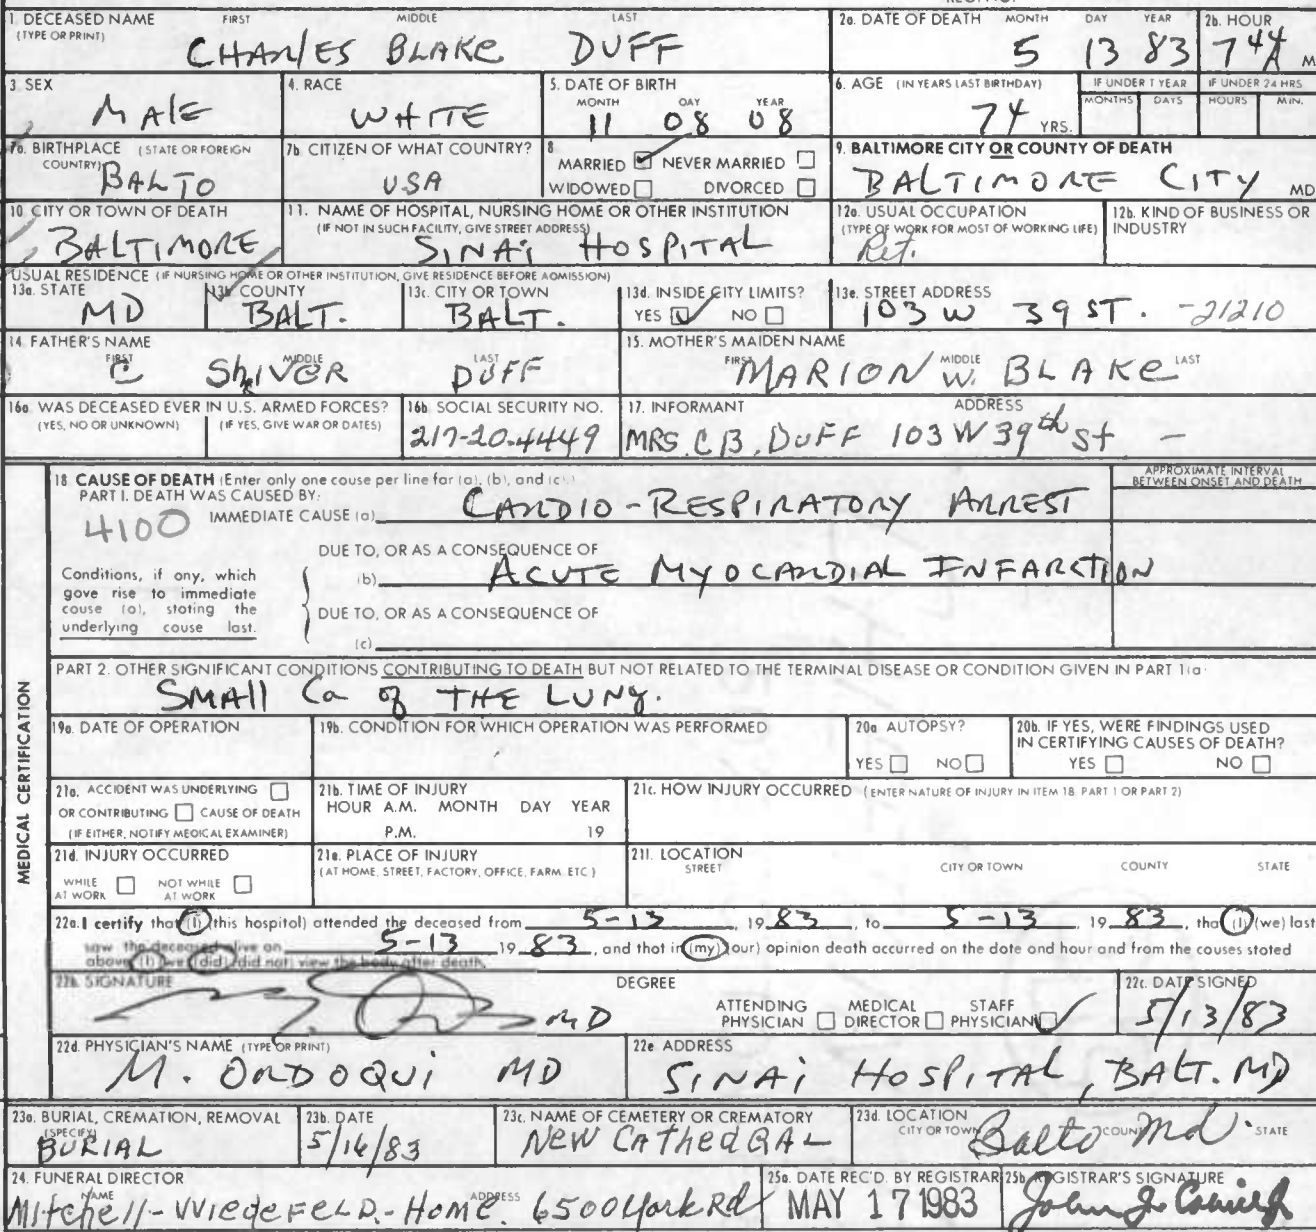 1. DECEASED NAME FIRST MIDDLE LAST
(TYPE OR PRINT)
CHARLES BLAKE DUFF
2a. DATE OF DEATH MONTH DAY YEAR
5 13 83
2b. HOUR
7 44 A M
3. SEX
MALE
4. RACE
WHITE
5. DATE OF BIRTH
MONTH DAY YEAR
11 08 08
6. AGE (IN YEARS LAST BIRTHDAY)
74 YRS.
IF UNDER 1 YEAR
MONTHS DAYS
IF UNDER 24 HRS
HOURS MIN.
7a. BIRTHPLACE (STATE OR FOREIGN
COUNTRY)
BALTO
7b. CITIZEN OF WHAT COUNTRY?
USA
8
MARRIED NEVER MARRIED
WIDOWED DIVORCED
9. BALTIMORE CITY OR COUNTY OF DEATH
BALTIMORE CITY MD
10. CITY OR TOWN OF DEATH
BALTIMORE
11. NAME OF HOSPITAL, NURSING HOME OR OTHER INSTITUTION
(IF NOT IN SUCH FACILITY, GIVE STREET ADDRESS)
SINAI HOSPITAL
12a. USUAL OCCUPATION
(TYPE OF WORK FOR MOST OF WORKING LIFE)
Ret.
12b. KIND OF BUSINESS OR
INDUSTRY
USUAL RESIDENCE (IF NURSING HOME OR OTHER INSTITUTION, GIVE RESIDENCE BEFORE ADMISSION)
13a. STATE
MD
13b. COUNTY
BALT.
13c. CITY OR TOWN
BALT.
13d. INSIDE CITY LIMITS?
YES NO
13e. STREET ADDRESS
103 W 39 ST. -21210
14. FATHER'S NAME
FIRST MIDDLE LAST
C ShRIVER DUFF
15. MOTHER'S MAIDEN NAME
FIRST MIDDLE LAST
MARION W. BLAKE
16a WAS DECEASED EVER IN U.S. ARMED FORCES?
(YES, NO OR UNKNOWN) (IF YES, GIVE WAR OR DATES)
16b. SOCIAL SECURITY NO.
217-20-4449
17. INFORMANT ADDRESS
MRS. C.B. DUFF 103 W 39th St -
18 CAUSE OF DEATH (Enter only one cause per line for (a), (b), and (c).)
PART I. DEATH WAS CAUSED BY:
APPROXIMATE INTERVAL
BETWEEN ONSET AND DEATH
4100
IMMEDIATE CAUSE (a) CARDIO-RESPIRATORY ARREST
DUE TO, OR AS A CONSEQUENCE OF
(b) ACUTE MYOCARDIAL INFARCTION
Conditions, if any, which
gave rise to immediate
cause (a), stating the
underlying cause last.
DUE TO, OR AS A CONSEQUENCE OF
(c)
PART 2. OTHER SIGNIFICANT CONDITIONS CONTRIBUTING TO DEATH BUT NOT RELATED TO THE TERMINAL DISEASE OR CONDITION GIVEN IN PART 1(a)
SMALL Ca of THE LUNG.
MEDICAL CERTIFICATION
19a. DATE OF OPERATION
19b. CONDITION FOR WHICH OPERATION WAS PERFORMED
20a AUTOPSY?
YES NO
20b. IF YES, WERE FINDINGS USED
IN CERTIFYING CAUSES OF DEATH?
YES NO
21a. ACCIDENT WAS UNDERLYING
OR CONTRIBUTING CAUSE OF DEATH
(IF EITHER, NOTIFY MEDICAL EXAMINER)
21b. TIME OF INJURY
HOUR A.M. MONTH DAY YEAR
P.M. 19
21c. HOW INJURY OCCURRED (ENTER NATURE OF INJURY IN ITEM 18, PART 1 OR PART 2)
21d. INJURY OCCURRED
WHILE AT WORK NOT WHILE AT WORK
21e. PLACE OF INJURY
(AT HOME, STREET, FACTORY, OFFICE, FARM, ETC.)
21f. LOCATION
STREET CITY OR TOWN COUNTY STATE
22a. I certify that (I) (this hospital) attended the deceased from 5-13, 1983, to 5-13, 1983, that (I) (we) last
saw the deceased alive on 5-13 1983, and that in (my) (our) opinion death occurred on the date and hour and from the causes stated
above, (I) (we) (did) (did not) view the body after death.
22b. SIGNATURE
MD
DEGREE
ATTENDING PHYSICIAN MEDICAL DIRECTOR STAFF PHYSICIAN
22c. DATE SIGNED
5/13/83
22d. PHYSICIAN'S NAME (TYPE OR PRINT)
M. ORDOQUI MD
22e. ADDRESS
SINAI HOSPITAL, BALT. MD
23a. BURIAL, CREMATION, REMOVAL
(SPECIFY)
BURIAL
23b. DATE
5/16/83
23c. NAME OF CEMETERY OR CREMATORY
NEW CATHEDRAL
23d. LOCATION
CITY OR TOWN COUNTY STATE
Balto Md.
24. FUNERAL DIRECTOR
NAME ADDRESS
Mitchell-WiedeFeLD.-Home. 6500 York Rd
25a. DATE REC'D. BY REGISTRAR
MAY 17 1983
25b. REGISTRAR'S SIGNATURE
John J.